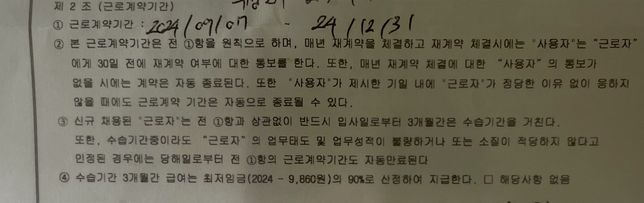 제 2 조 (근로계약기간)
① 근로계약기간 : 2024/09/07 - 24/12/31
② 본 근로계약기간은 전 ①항을 원칙으로 하며, 매년 재계약을 체결하고 재계약 체결시에는 "사용자"는 "근로자"
에게 30일 전에 재계약 여부에 대한 통보를 한다. 또한, 매년 재계약 체결에 대한 "사용자" 의 통보가
없을 시에는 계약은 자동 종료된다. 또한 "사용자"가 제시한 기일 내에 "근로자"가 정당한 이유 없이 응하지
않을 때에도 근로계약 기간은 자동으로 종료될 수 있다.
③ 신규 채용된 "근로자"는 전 ①항과 상관없이 반드시 입사일로부터 3개월간은 수습기간을 거친다.
또한, 수습기간중이라도 "근로자" 의 업무태도 및 업무성적이 불량하거나 또는 소질이 적당하지 않다고
인정된 경우에는 당해일로부터 전 ①항의 근로계약기간도 자동만료된다
④ 수습기간 3개월간 급여는 최저임금(2024 - 9,860원)의 90%로 산정하여 지급한다. □ 해당사항 없음